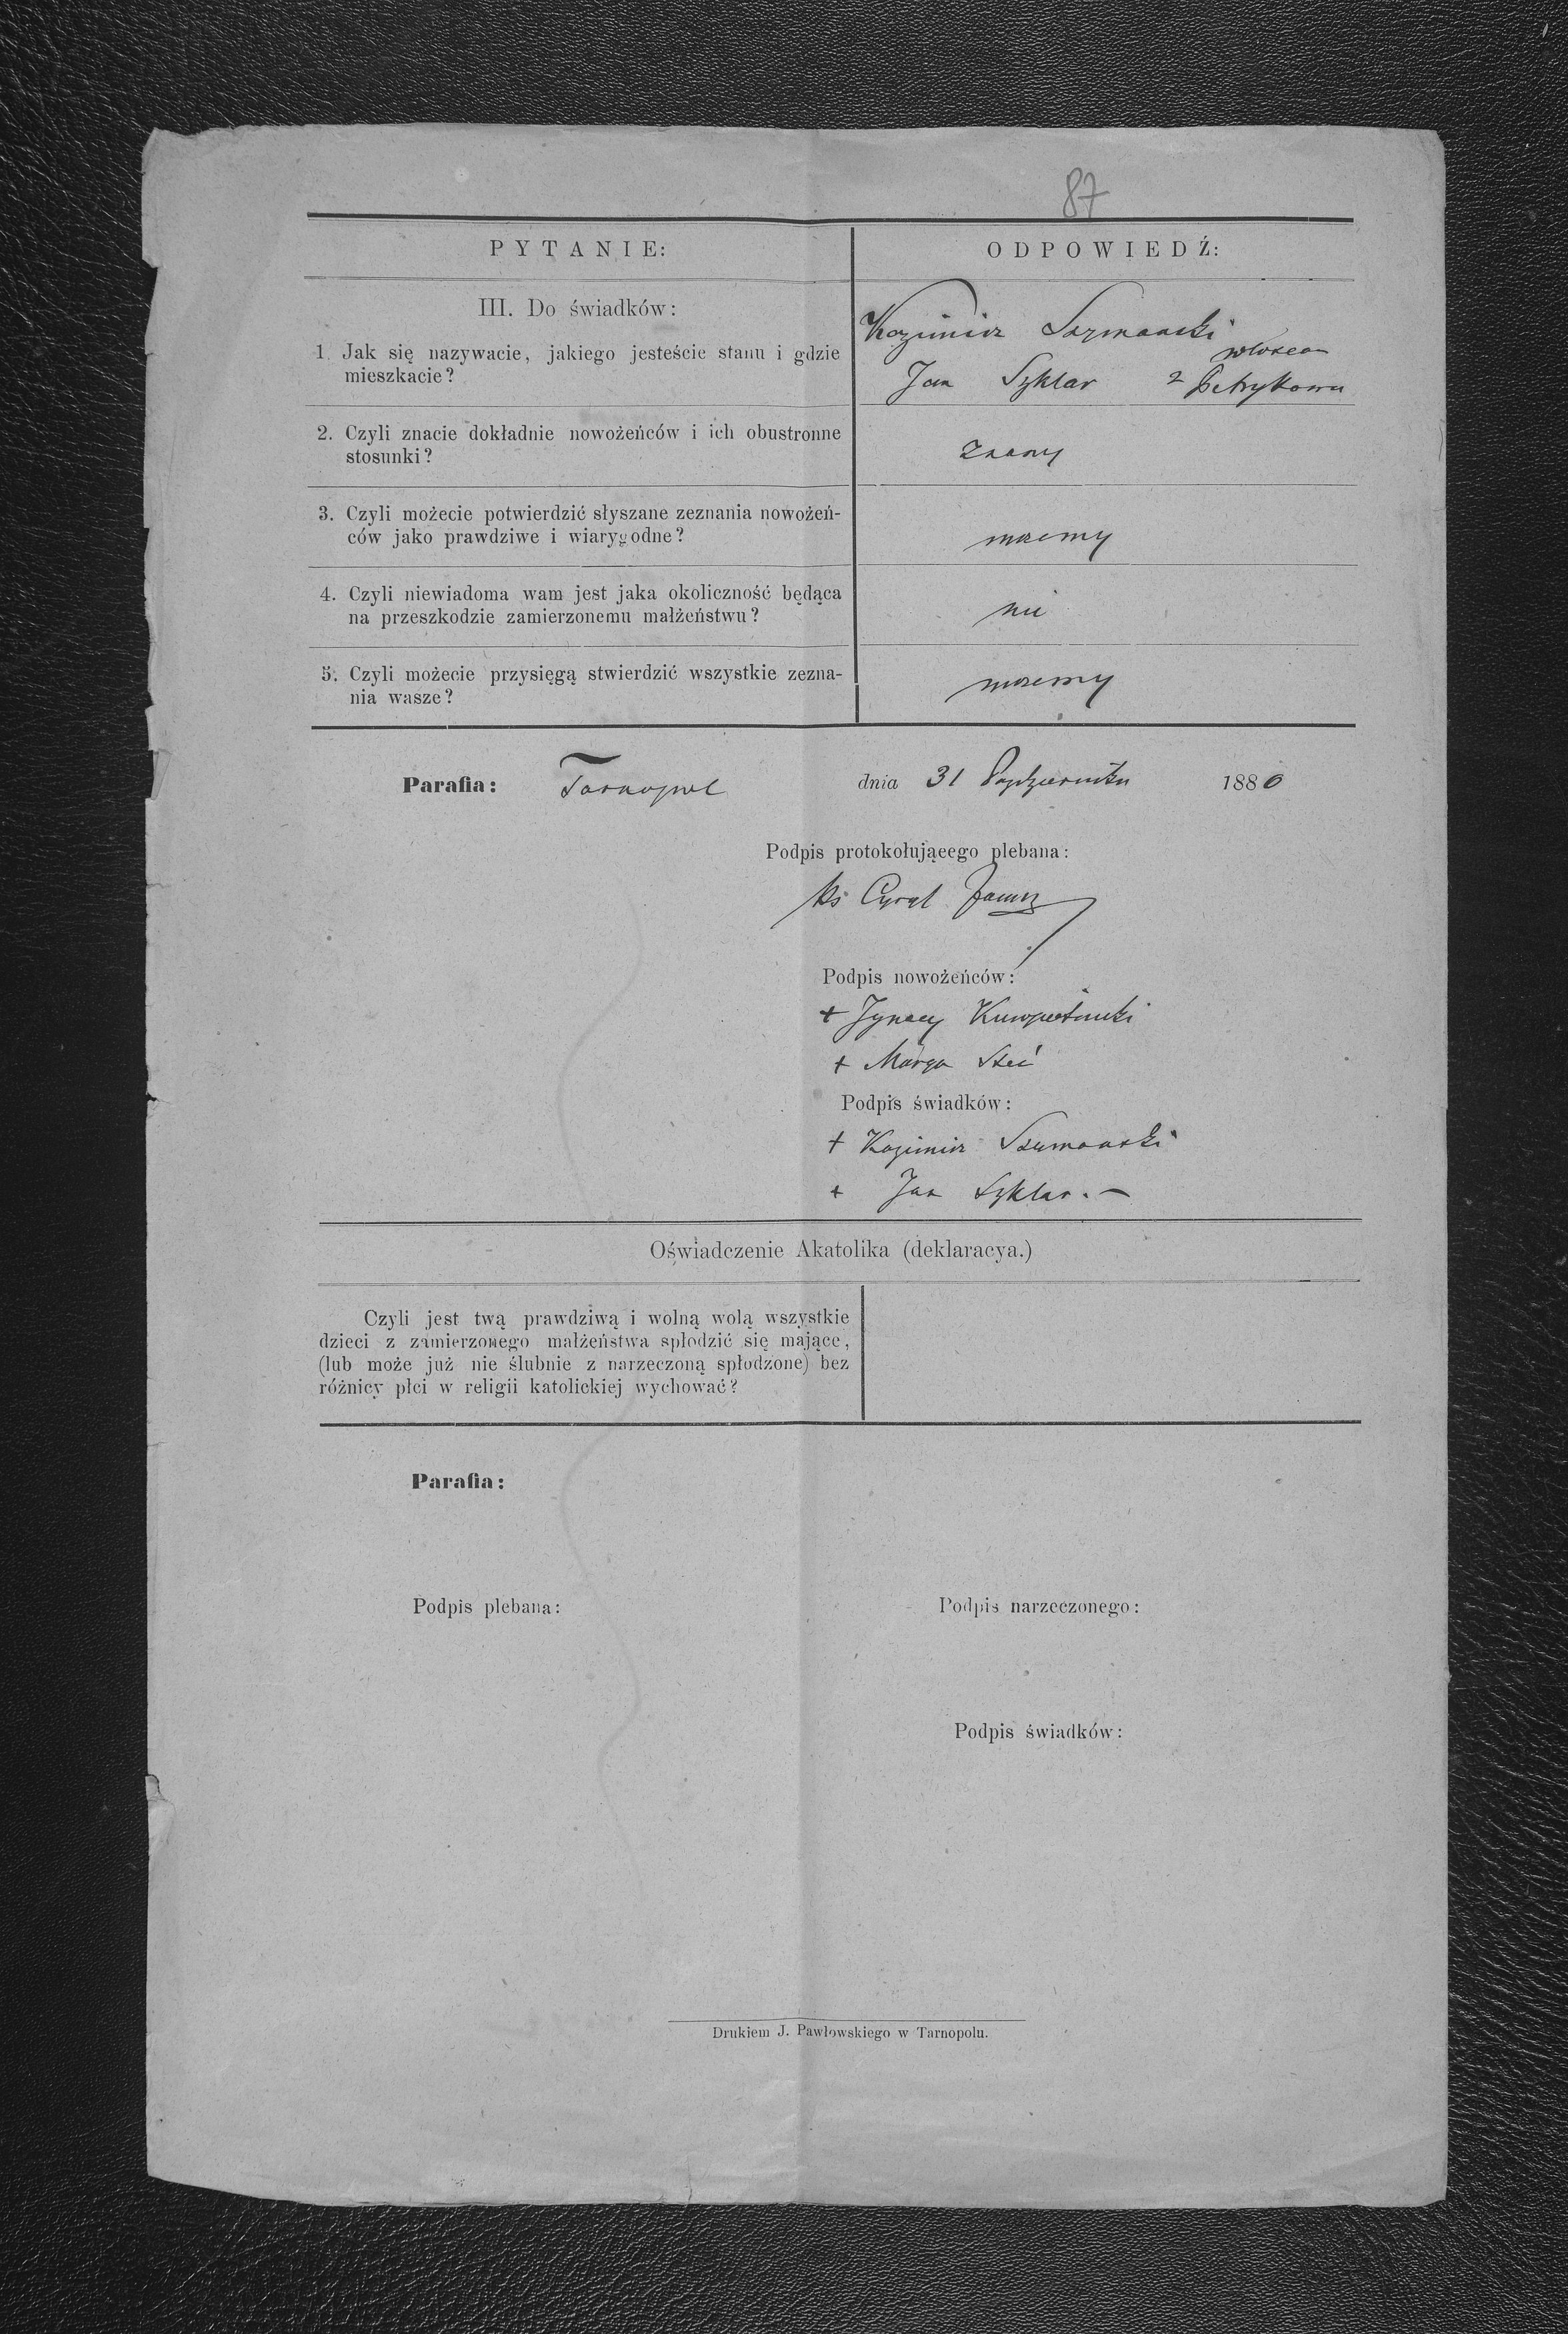 87
PYTANIE: ODPOWIEDŹ:
III. Do świadków:
1. Jak się nazywacie, jakiego jesteście stanu i gdzie
mieszkacie?
Kazimierz Szymański
Jan Szklar z Petrykowa
2. Czyli znacie dokładnie nowożeńców i ich obustronne
stosunki?
znamy
3. Czyli możecie potwierdzić słyszane zeznania nowożeń-
ców jako prawdziwe i wiarygodne?
możemy
4. Czyli niewiadoma wam jest jaka okoliczność będąca
na przeszkodzie zamierzonemu małżeństwu?
nie
5. Czyli możecie przysięgą stwierdzić wszystkie zezna-
nia wasze?
możemy
Parafia: Tarnopol dnia 31 Października 1880
Podpis protokołującego plebana:
ks Cyryl
Podpis nowożeńców:
+ Ignacy
+ Marya Steć
Podpis świadków:
+ Kazimierz Szumański
+ Jan Szklar. —
Oświadczenie Akatolika (deklaracya.)
Czyli jest twą prawdziwą i wolną wolą wszystkie
dzieci z zamierzonego małżeństwa spłodzić się mające,
(lub może już nie ślubnie z narzeczoną spłodzone) bez
różnicy płci w religii katolickiej wychować?
Parafia:
Podpis plebana: Podpis narzeczonego:
Podpis świadków:
Drukiem J. Pawłowskiego w Tarnopolu.